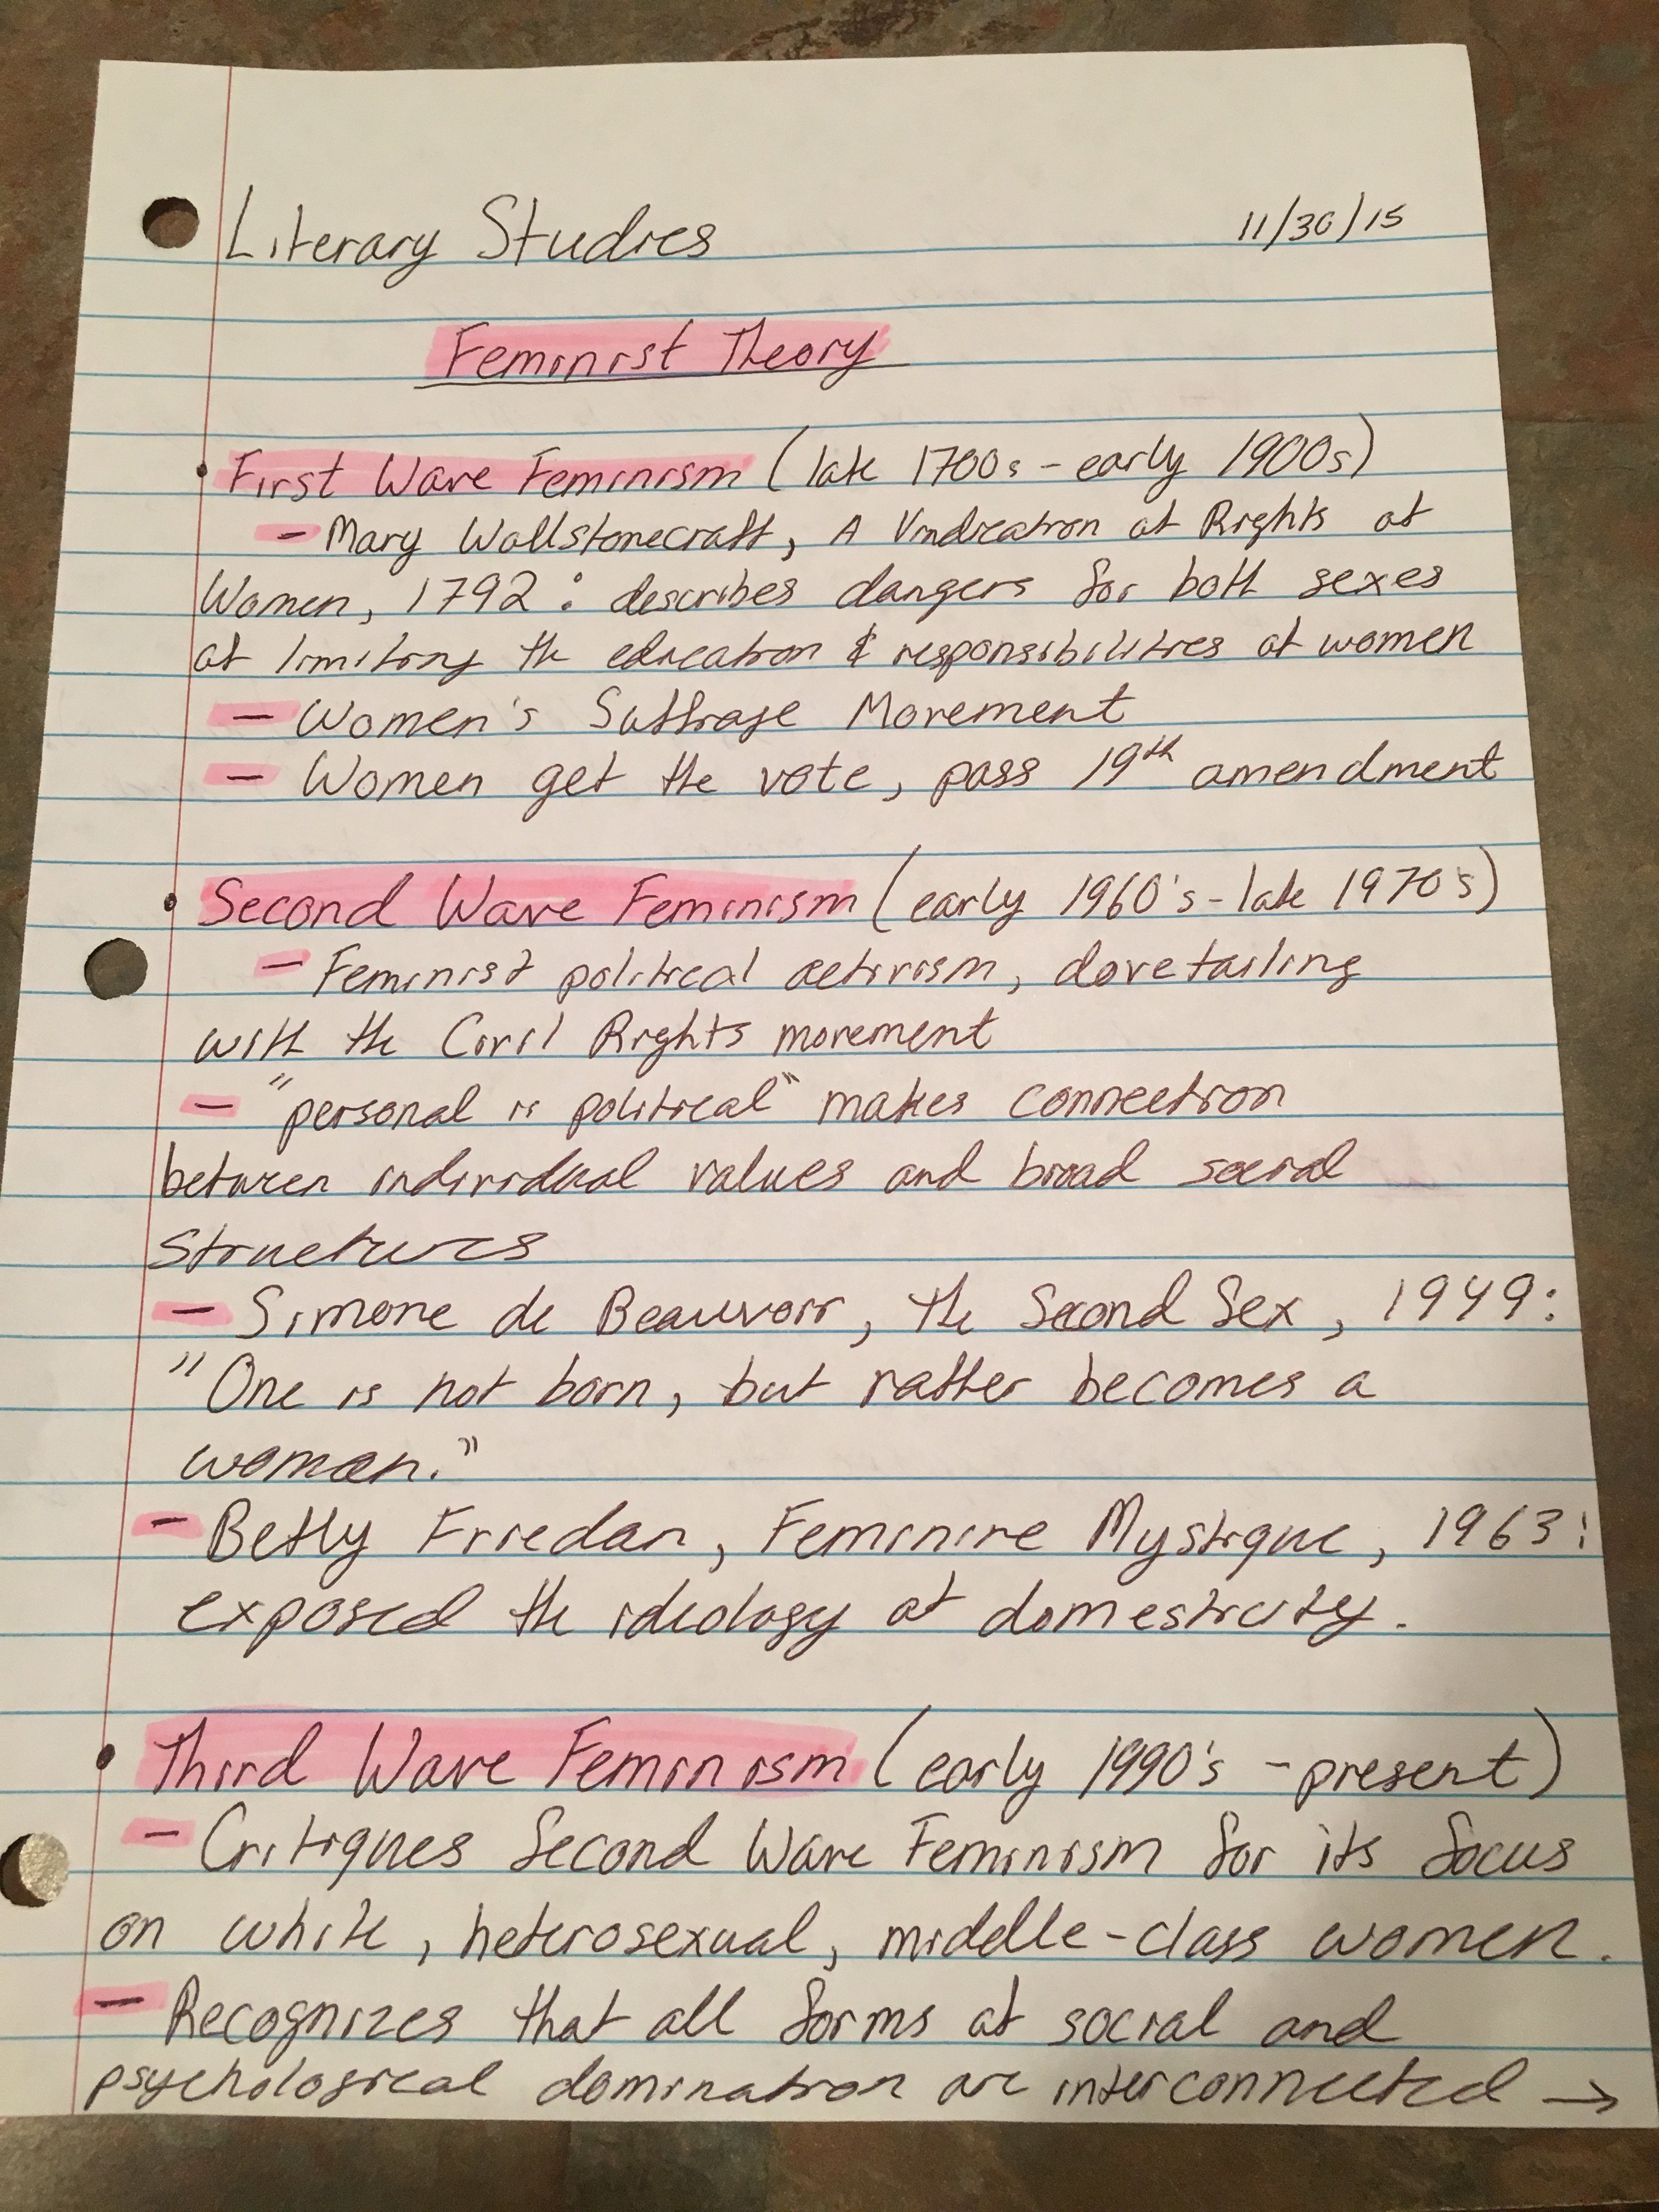 Literary Studies 11/30/15
Feminist Theory
• First Wave Feminism (late 1700s - early 1900s)
- Mary Wollstonecraft, A Vindication of Rights of
Women, 1792: describes dangers for both sexes
of limiting the education & responsibilities of women
- Women's Suffrage Movement
- Women get the vote, pass 19th amendment
• Second Wave Feminism (early 1960's - late 1970's)
- Feminist political activism, dovetailing
with the Civil Rights movement
- "personal is political" makes connection
between individual values and broad social
structures
- Simone de Beauvoir, the Second Sex, 1949:
"One is not born, but rather becomes a
woman."
- Betty Friedan, Feminine Mystique, 1963:
exposed the ideology of domesticity.
• Third Wave Feminism (early 1990's - present)
- Critiques Second Wave Feminism for its focus
on white, heterosexual, middle-class women.
- Recognizes that all forms of social and
psychological domination are interconnected →